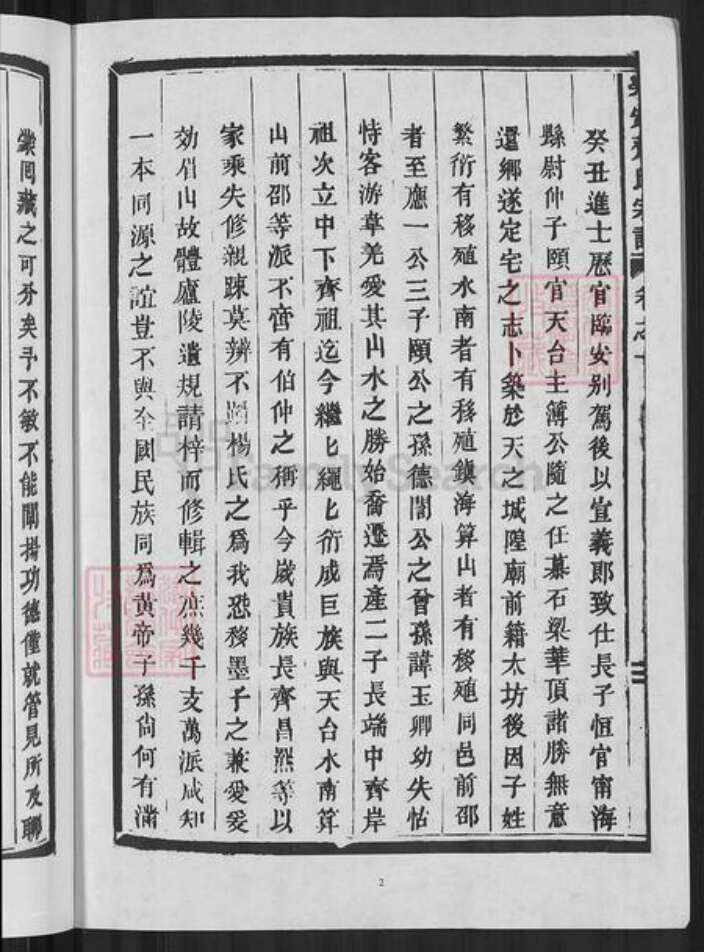 癸丑進士歷官臨安別駕後以宣義郎致仕長子恒官甯海
縣尉仲子頤官天台主簿公隨之任慕石梁華頂諸勝無意
還鄉遂定宅之志卜築於天之城隍廟前籍太坊後因子姓
繁衍有移殖水南者有移殖鎮海算山者有移殖同邑前邵
者至應一公三子頤公之孫德闇公之曾孫諱玉卿幼失怙
恃客游阜羌愛其山水之勝始喬遷焉產二子長端中齊岸
祖次立中下齊祖迄今繼匕繩匕衍成巨族與天台水南算
山前邵等派不啻有伯仲之稱乎今歲貴族長齊昌煕等以
家乘失修親踈莫辨不溺楊氏之為我恐移墨子之兼愛爰
効眉山故體廬陵遺規請梓而修輯之庶幾千支萬派咸知
一本同源之誼豈不與全國民族同為黃帝子孫尙何有滿
蒙回藏之可分矣予不敏不能闡揚功德僅就管見所及聊
卷之
2
FamilySearch